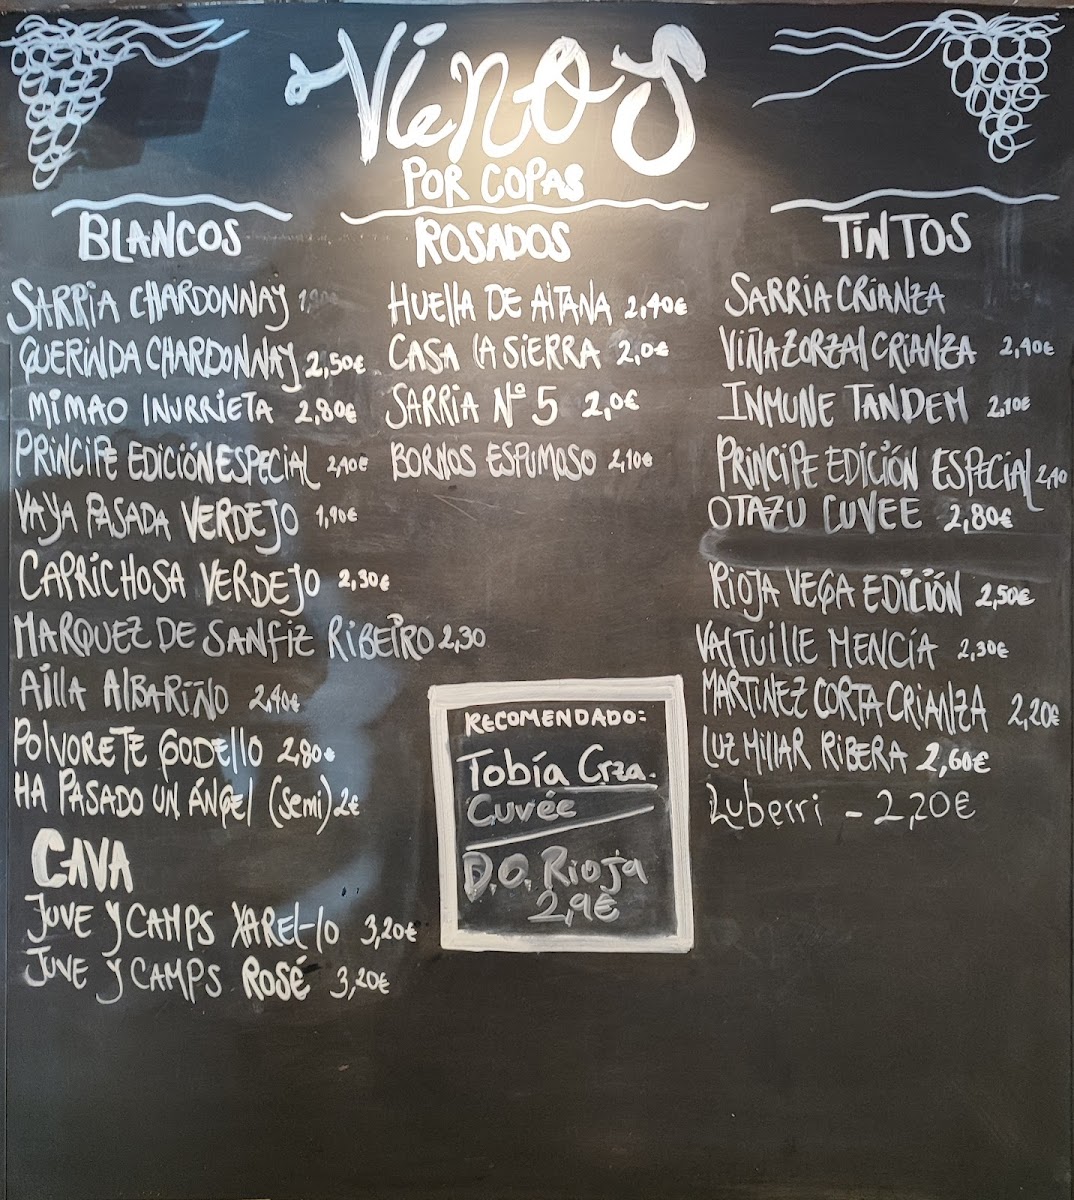 Vinos
POR COPAS
BLANCOS
SARRIA CHARDONNAY
QUERINDA CHARDONNAY 2,50€
MIMAO INURRIETA 2,80€
PRINCIPE EDICIÓN ESPECIAL 2,40€
VAYA PASADA VERDEJO 1,90€
CAPRICHOSA VERDEJO 2,30€
MARQUEZ DE SANFIZ RIBEIRO 2,30
AILLA ALBARIÑO 2,40€
POLVORETE GODELLO 2,80€
HA PASADO UN ÁNGEL (SEMI) 2€
CAVA
JUVE Y CAMPS XAREL-LO 3,20€
JUVE Y CAMPS ROSÉ 3,20€
ROSADOS
HUELLA DE AITANA 2,40€
CASA LA SIERRA 2,0€
SARRIA Nº 5 2,0€
BORNOS ESPUMOSO 2,10€
RECOMENDADO:
Tobía Crza.
Cuvée
D.O. Rioja
2,9€
TINTOS
SARRIA CRIANZA
VIÑA ZORZAL CRIANZA 2,40€
INMUNE TANDEM 2,10€
PRINCIPE EDICIÓN ESPECIAL 2,40
OTAZU CUVEE 2,80€
RIOJA VEGA EDICIÓN 2,50€
VALTUILLE MENCÍA 2,30€
MARTINEZ CORTA CRIANZA 2,20€
LUZ MILLAR RIBERA 2,60€
Luberri - 2,20€